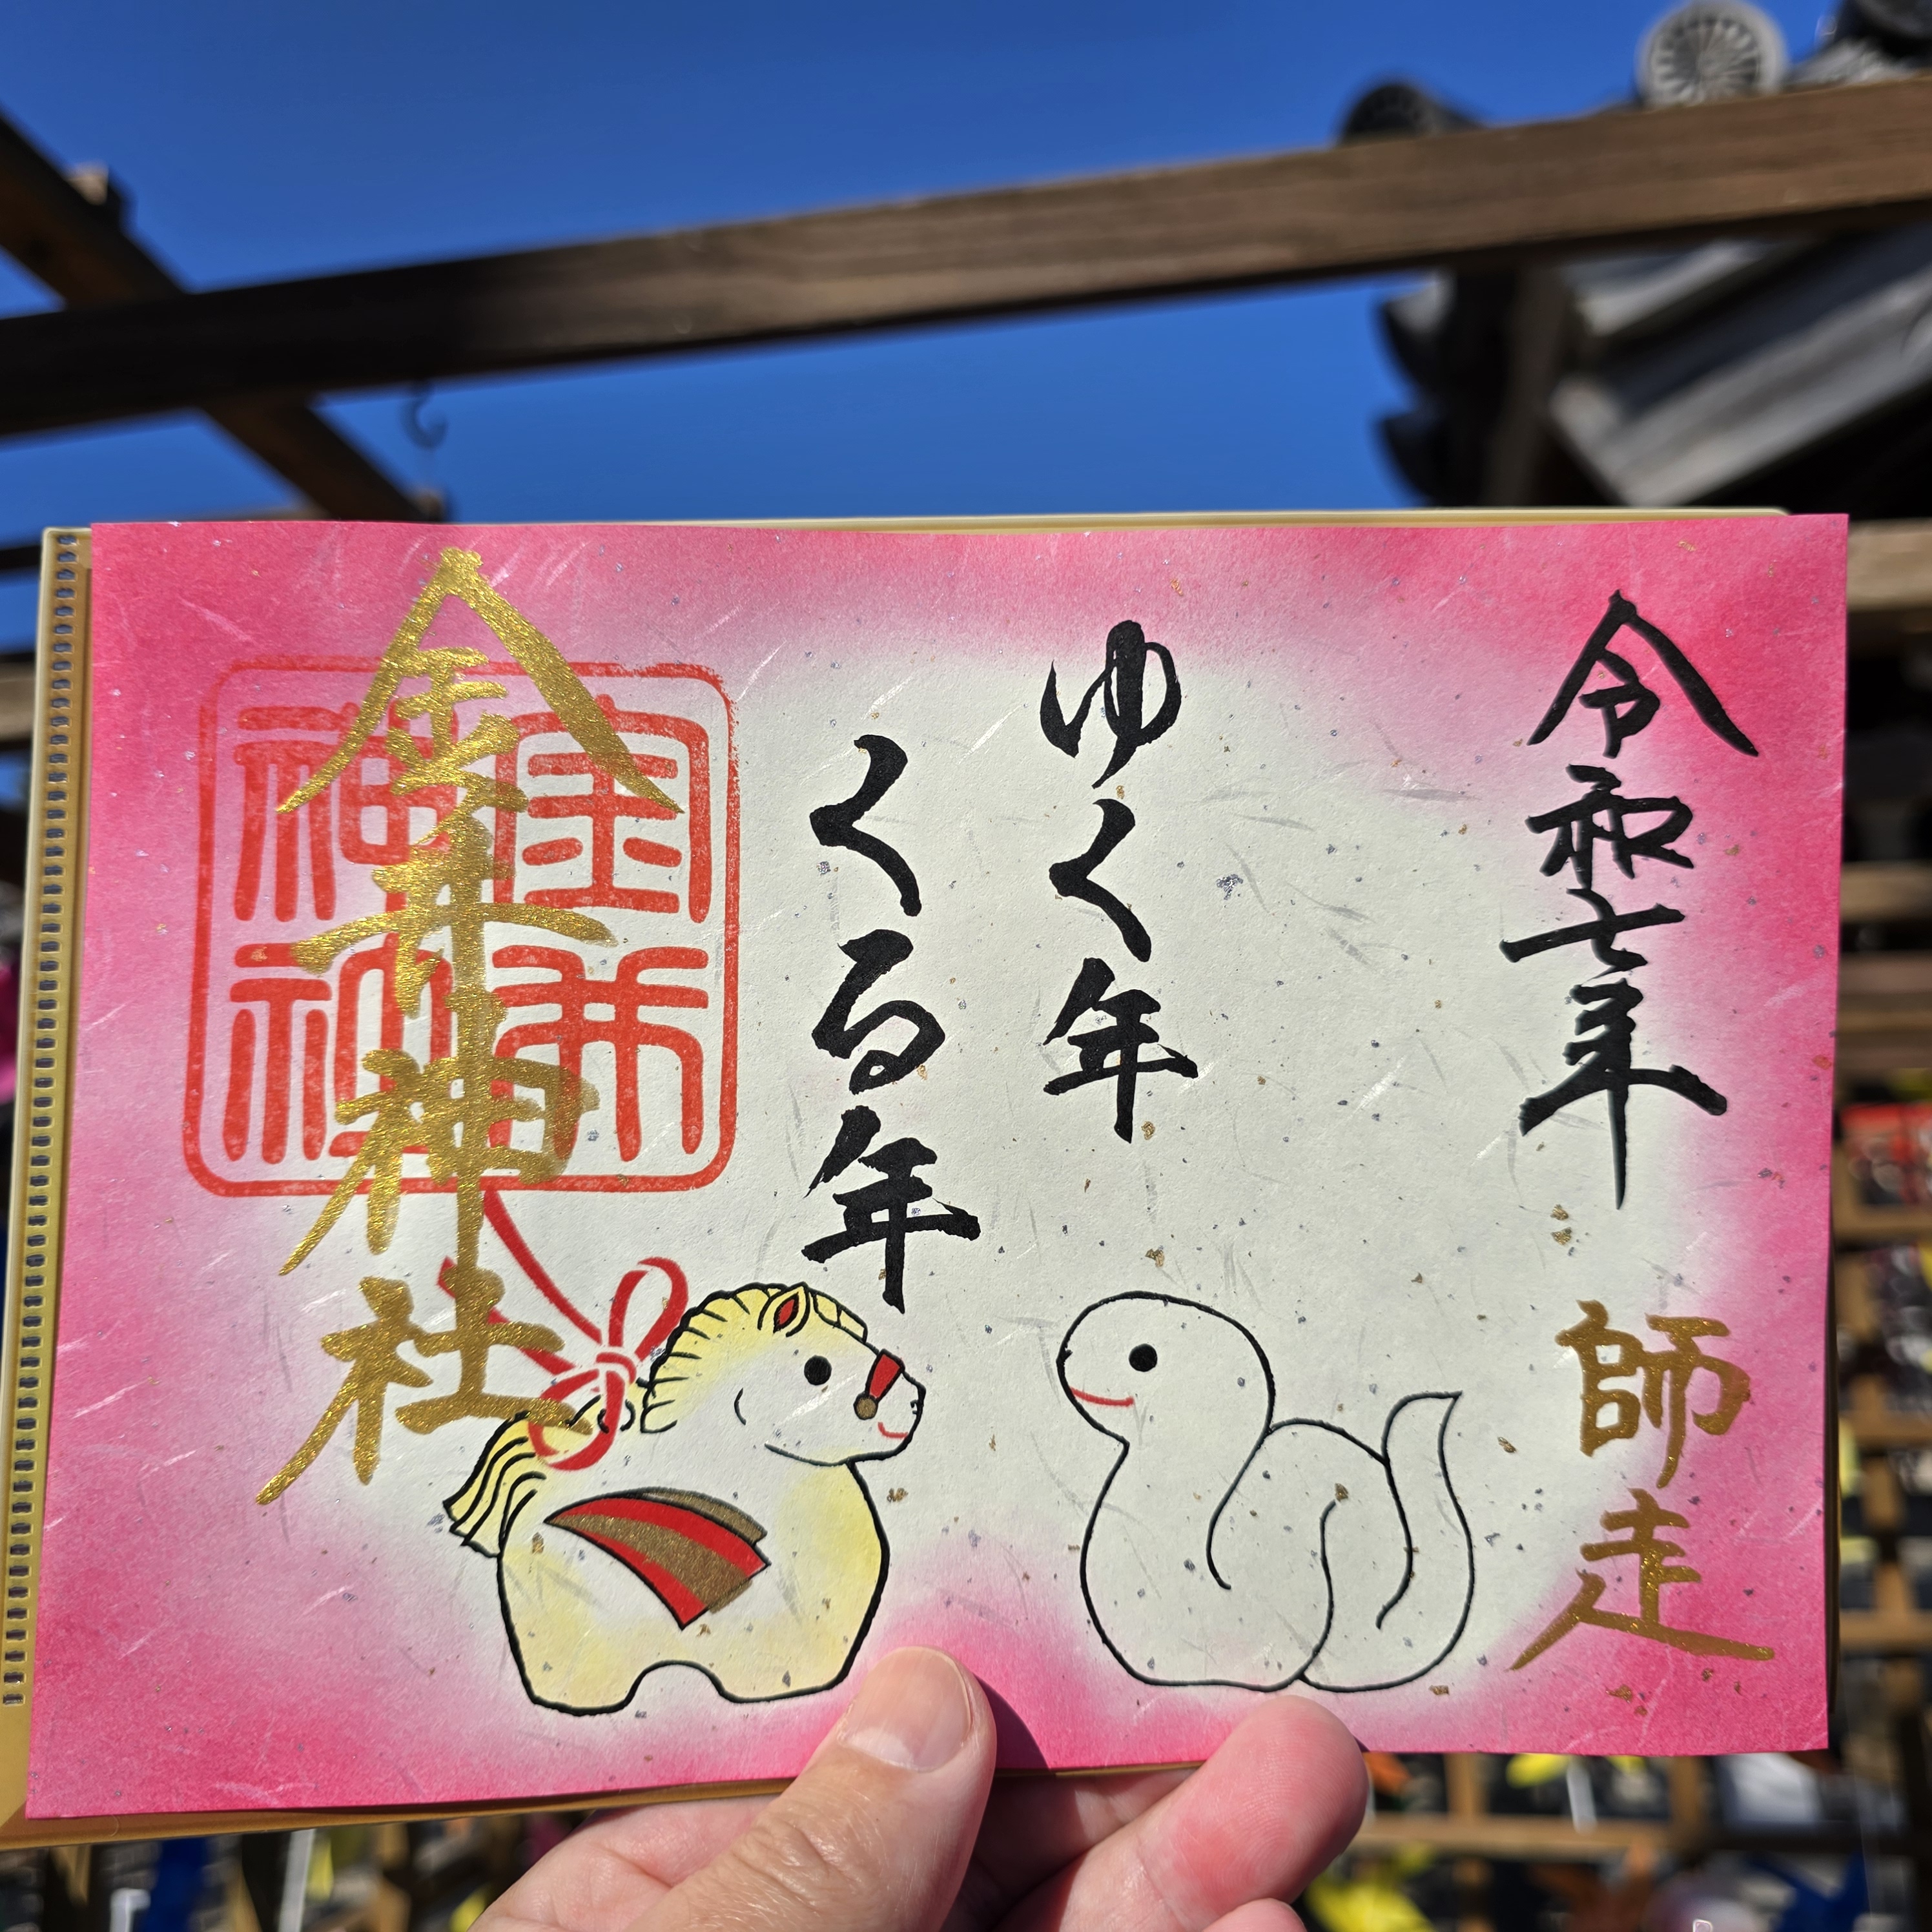 令和七年
師走
ゆく年
くる年
金井神社
金井
神社